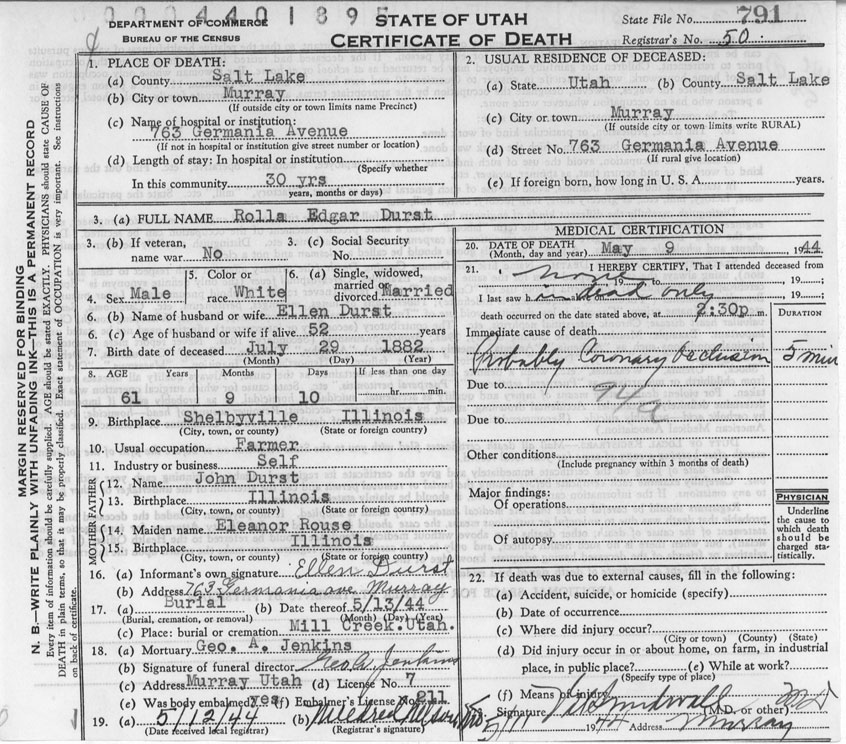 00004401895
DEPARTMENT OF COMMERCE
BUREAU OF THE CENSUS
STATE OF UTAH
CERTIFICATE OF DEATH
State File No. 791
Registrar's No. 50
MARGIN RESERVED FOR BINDING
N. B.—WRITE PLAINLY WITH UNFADING INK—THIS IS A PERMANENT RECORD
Every item of information should be carefully supplied. AGE should be stated EXACTLY. PHYSICIANS should state CAUSE OF
DEATH in plain terms, so that it may be properly classified. Exact statement of OCCUPATION is very important. See instructions
on back of certificate.
1. PLACE OF DEATH:
(a) County Salt Lake
(b) City or town Murray
(If outside city or town limits name Precinct)
(c) Name of hospital or institution:
763 Germania Avenue
(If not in hospital or institution give street number or location)
(d) Length of stay: In hospital or institution
(Specify whether
In this community 30 yrs
years, months or days)
2. USUAL RESIDENCE OF DECEASED:
(a) State Utah (b) County Salt Lake
(c) City or town Murray
(If outside city or town limits write RURAL)
(d) Street No. 763 Germania Avenue
(If rural give location)
(e) If foreign born, how long in U. S. A. years.
3. (a) FULL NAME Rolla Edgar Durst
3. (b) If veteran, name war No
3. (c) Social Security No.
4. Sex Male
5. Color or race White
6. (a) Single, widowed, married or divorced Married
6. (b) Name of husband or wife Ellen Durst
6. (c) Age of husband or wife if alive 52 years
7. Birth date of deceased July 29 1882
(Month) (Day) (Year)
8. AGE Years Months Days If less than one day
61 9 10 hr. min.
9. Birthplace Shelbyville Illinois
(City, town, or county) (State or foreign country)
10. Usual occupation Farmer
11. Industry or business Self
FATHER
12. Name John Durst
13. Birthplace Illinois
(City, town, or county) (State or foreign country)
MOTHER
14. Maiden name Eleanor Rouse
15. Birthplace Illinois
(City, town, or county) (State or foreign country)
16. (a) Informant's own signature Ellen Durst
(b) Address 763 Germania ave Murray
17. (a) Burial (b) Date thereof 5/13/44
(Burial, cremation, or removal) (Month) (Day) (Year)
(c) Place: burial or cremation Mill Creek. Utah.
18. (a) Mortuary Geo. A. Jenkins
(b) Signature of funeral director Geo A Jenkins
(c) Address Murray Utah (d) License No. 7
(e) Was body embalmed? yes (f) Embalmer's License No. 211
19. (a) 5/12/44 (b) Mildred
(Date received local registrar) (Registrar's signature)
MEDICAL CERTIFICATION
20. DATE OF DEATH May 9 1944
(Month, day and year)
21. I HEREBY CERTIFY, That I attended deceased from
None 19 to 19 ;
I last saw h in dead only 19 ;
death occurred on the date stated above, at 2:30p m.
DURATION
Immediate cause of death
Probably Coronary Occlusion 5 min
Due to
94a
Due to
Other conditions
(Include pregnancy within 3 months of death)
Major findings:
Of operations
Of autopsy
PHYSICIAN
Underline
the cause to
which death
should be
charged sta-
tistically.
22. If death was due to external causes, fill in the following:
(a) Accident, suicide, or homicide (specify)
(b) Date of occurrence
(c) Where did injury occur?
(City or town) (County) (State)
(d) Did injury occur in or about home, on farm, in industrial
place, in public place? (e) While at work?
(Specify type of place)
(f) Means of injury
23. Signature MD
(M.D. or other)
5/11 1944 Address Murray